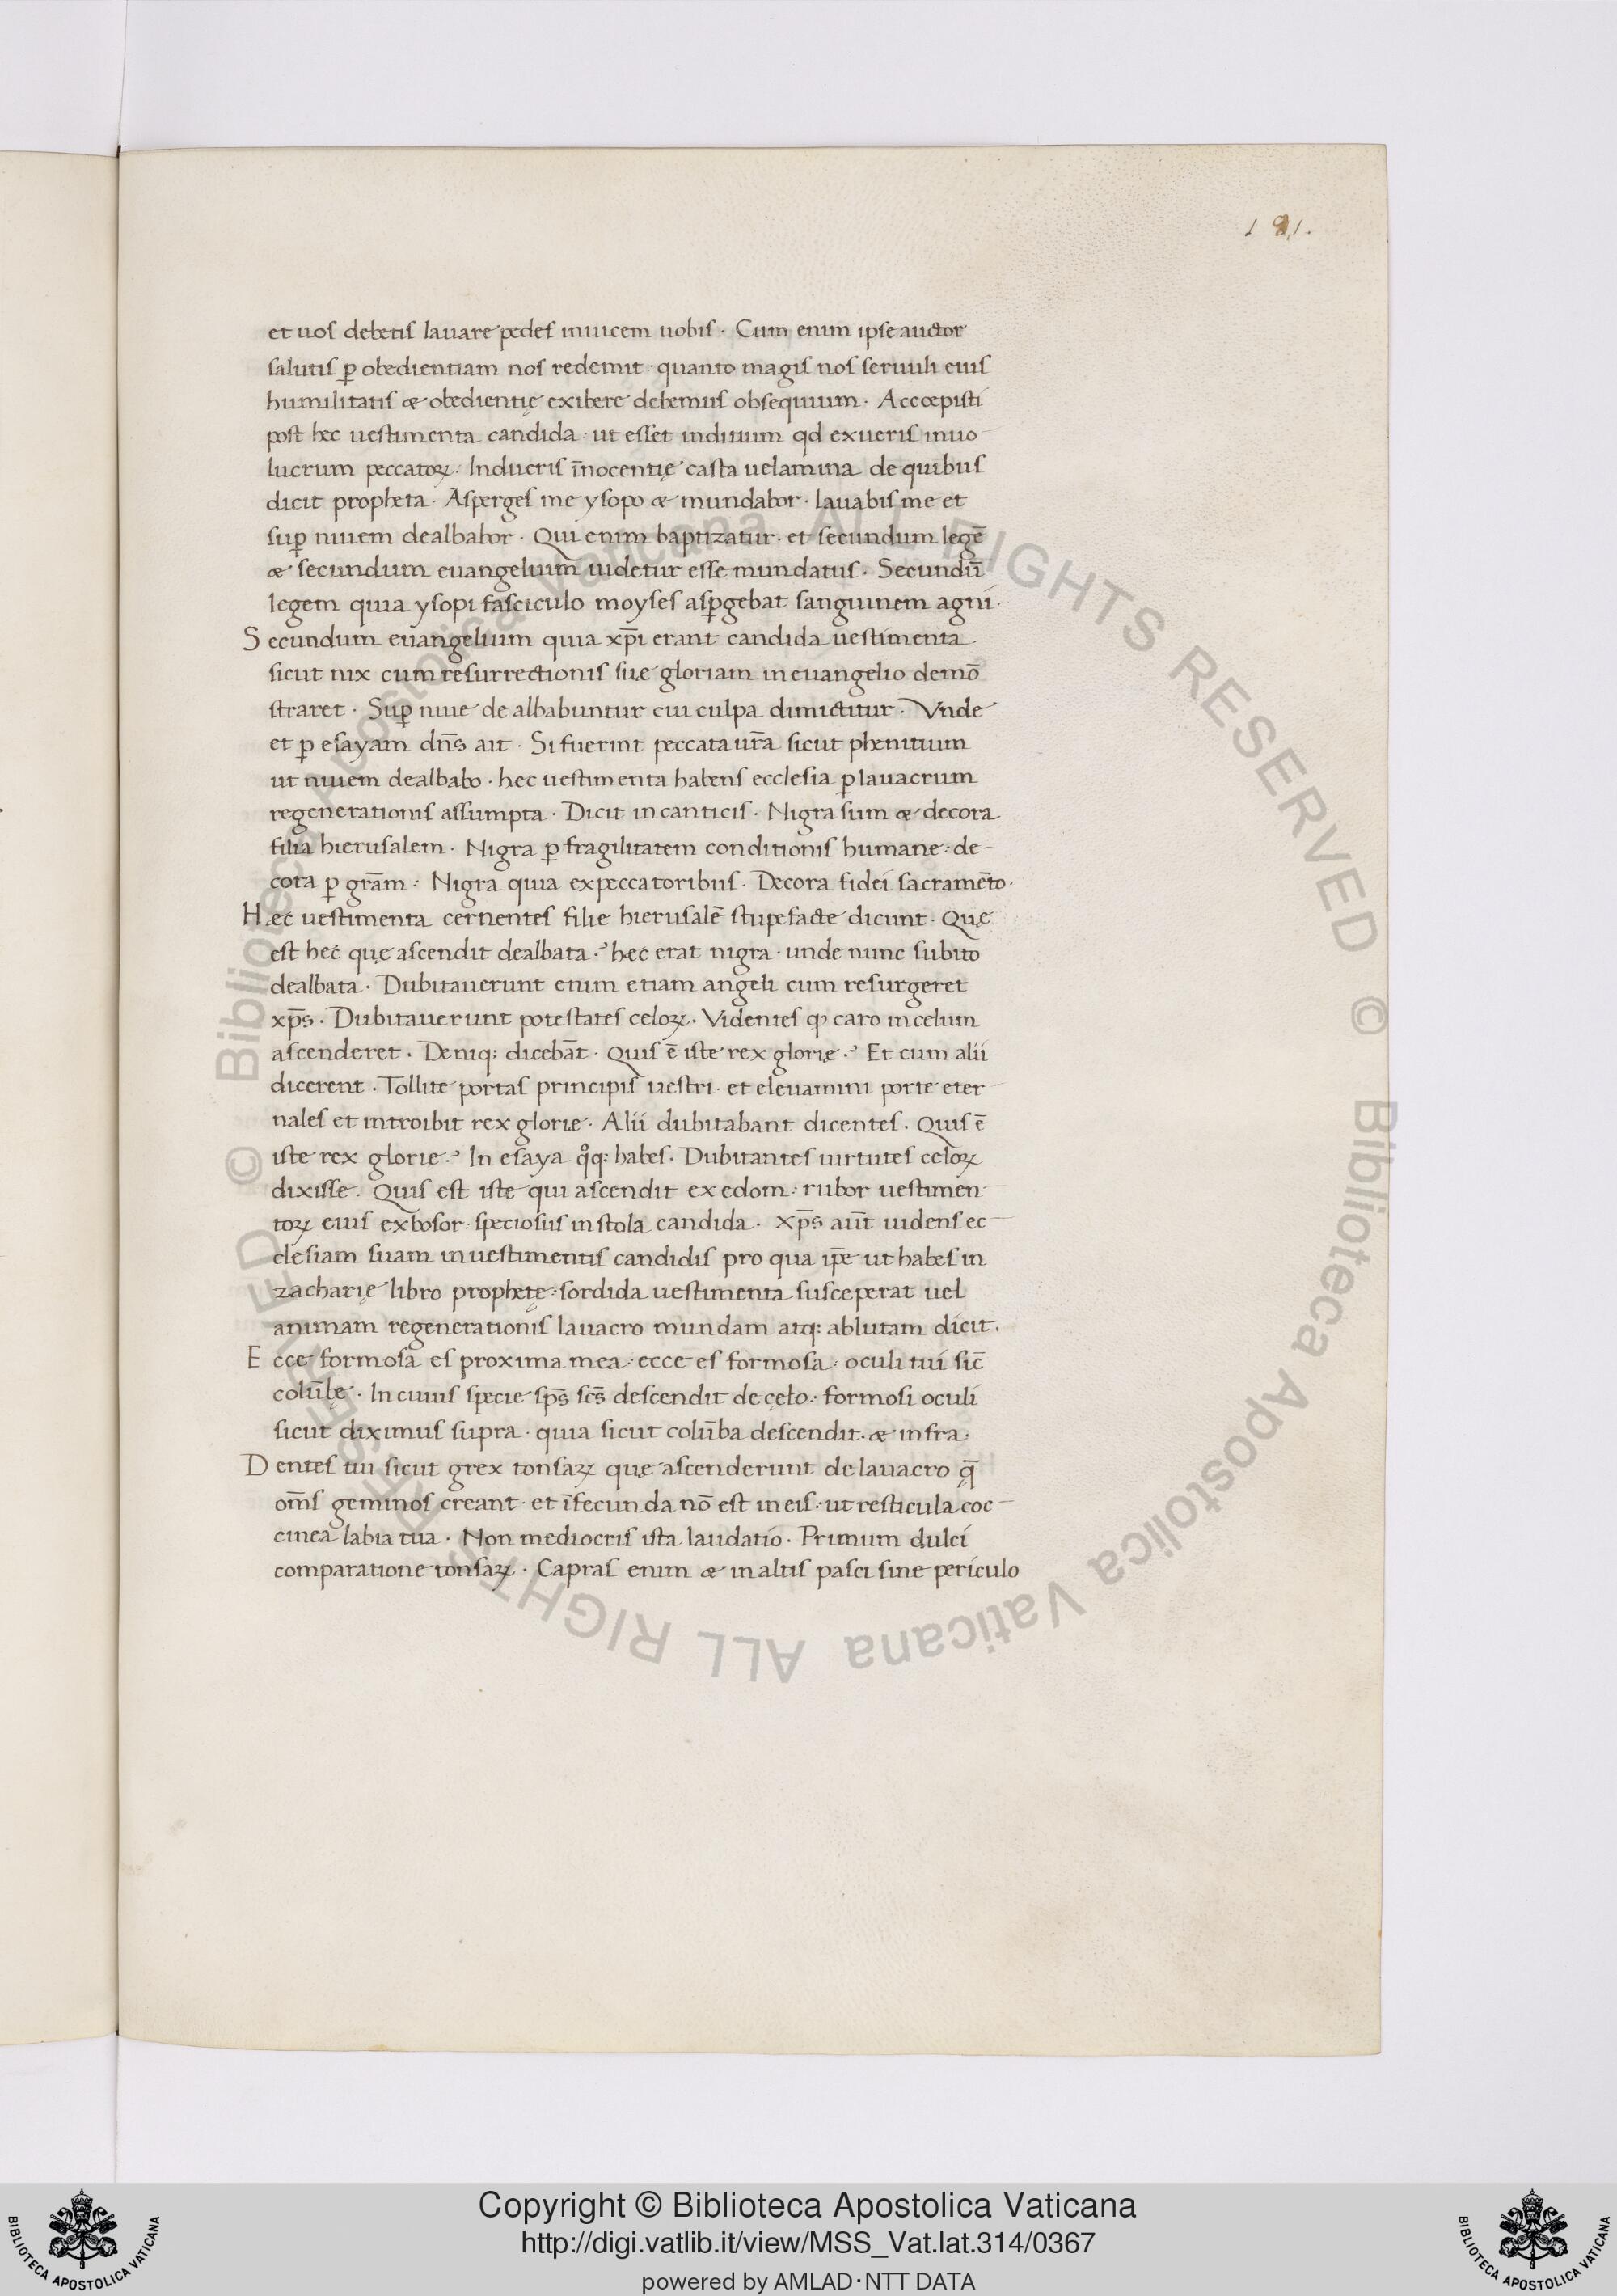 191.
et uos debetis lauare pedes inuicem uobis · Cum enim ipse auctor
salutis ꝑ obedientiam nos redemit · quanto magis nos seruuli eius
humilitatis æ obedientię exibere debemus obsequium · Accœpisti
post hec uestimenta candida · ut esset inditium qd exueris inuo-
lucrum peccatoꝝ · Indueris īnocentię casta uelamina de quibus
dicit propheta · Asperges me ysopo æ mundabor · lauabis me et
suꝑ niuem dealbabor · Qui enim baptizatur · et secundum legē
æ secundum euangelium uidetur esse mundatus · Secundū
legem quia ysopi fasciculo moyses asꝑgebat sanguinem agni ·
Secundum euangelium quia xp̄i erant candida uestimenta
sicut nix cum resurrectionis suę gloriam in euangelio demō
straret · Suꝑ niue de albabuntur cui culpa dimictitur · Vnde
et ꝑ esayam dn̄s ait · Si fuerint peccata ur̄a sicut phenitium
ut niuem dealbabo · hec uestimenta habens ecclesia ꝑ lauacrum
regenerationis assumpta · Dicit in canticis · Nigra sum æ decora
filia hierusalem · Nigra ꝑ fragilitatem conditionis humane : de-
cora ꝑ grām : Nigra quia ex peccatoribus · Decora fidei sacramēto ·
Hæc uestimenta cernentes filie hierusalē stupefacte dicunt · Quę
est hec quę ascendit dealbata ·? hęc erat nigra · unde nunc subito
dealbata · Dubitauerunt enim etiam angeli cum resurgeret
xp̄s · Dubitauerunt potestates celoꝝ · Videntes ꝙ caro in celum
ascenderet · Deniq: dicebāt · Quis ē iste rex glorię ·? Et cum alii
dicerent · Tollite portas principis uestri · et eleuamini porte eter-
nales et introibit rex glorię · Alii dubitabant dicentes · Quis ē
iste rex glorie ·? In esaya qͦq: habes · Dubitantes uirtutes celoꝝ
dixisse · Quis est iste qui ascendit ex edom : rubor uestimen-
toꝝ eius ex bosor : speciosus in stola candida · Xp̄s aūt uidens ec-
clesiam suam in uestimentis candidis pro qua ip̄e ut habes in
zacharię libro prophetę : sordida uestimenta susceperat uel
animam regenerationis lauacro mundam atq: ablutam dicit ·
Ecce formosa es proxima mea : ecce es formosa : oculi tui sic̄
colūbę · In cuius specie sp̄s sc̄s descendit de cęlo : formosi oculi
sicut diximus supra · quia sicut colūba descendit · æ infra ·
Dentes tui sicut grex tonsaꝝ quę ascenderunt de lauacro q̄
om̄s geminos creant · et īfecunda nō est in eis : ut resticula coc-
cinea labia tua · Non mediocris ista laudatio · Primum dulci
comparatione tonsaꝝ · Capras enim æ in altis pasci sine periculo
© Biblioteca Apostolica Vaticana ALL RIGHTS RESERVED © Biblioteca Apostolica Vaticana ALL RIGHTS RESERVED
Copyright © Biblioteca Apostolica Vaticana
http://digi.vatlib.it/view/MSS_Vat.lat.314/0367
powered by AMLAD·NTT DATA
BIBLIOTECA APOSTOLICA VATICANA
BIBLIOTECA APOSTOLICA VATICANA